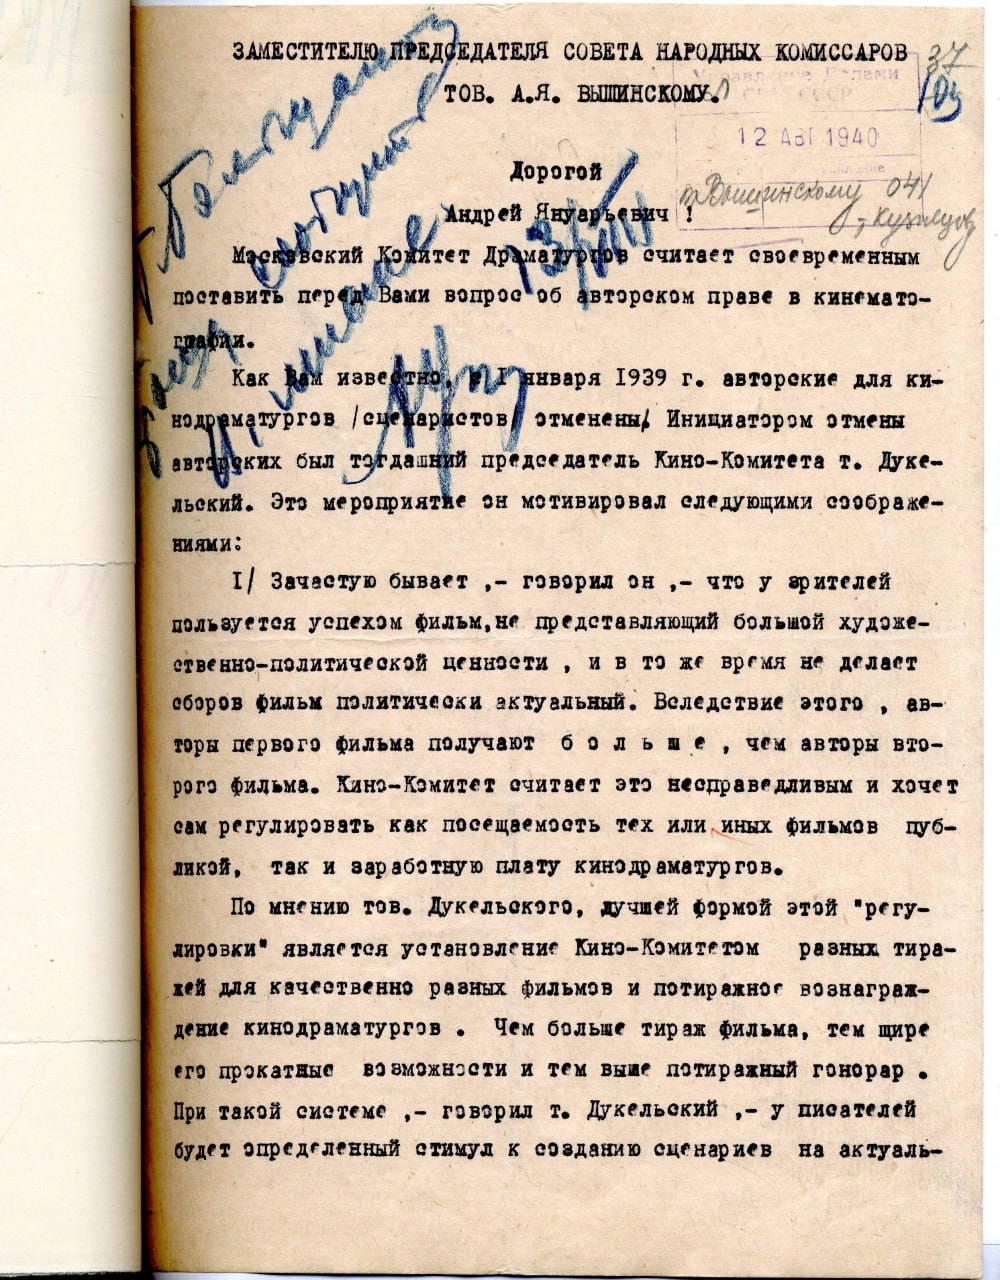 ЗАМЕСТИТЕЛЮ ПРЕДСЕДАТЕЛЯ СОВЕТА НАРОДНЫХ КОМИССАРОВ
37
Управление Делами
ТОВ. А.Я. ВЫШИНСКОМУ.
СНК СССР
103
12 АВГ 1940
Дорогой
т. Вышинскому 041
Андрей Януарьевич !
т. Кузнецов
Московский Комитет Драматургов считает своевременным
поставить перед Вами вопрос об авторском праве в кинемато-
графии.
Как Вам известно, с I января 1939 г. авторские для ки-
нодраматургов /сценаристов/ отменены. Инициатором отмены
авторских был тогдашний председатель Кино-Комитета т. Дуке-
льский. Это мероприятие он мотивировал следующими соображе-
ниями:
I/ Зачастую бывает ,- говорил он ,- что у зрителей
пользуется успехом фильм,не представляющий большой художе-
ственно-политической ценности , и в то же время не делает
сборов фильм политически актуальный. Вследствие этого , ав-
торы первого фильма получают б о л ь ш е , чем авторы вто-
рого фильма. Кино-Комитет считает это несправедливым и хочет
сам регулировать как посещаемость тех или иных фильмов пуб-
ликой, так и заработную плату кинодраматургов.
По мнению тов. Дукельского, лучшей формой этой "регу-
лировки" является установление Кино-Комитетом разных тира-
жей для качественно разных фильмов и потиражное вознаграж-
дение кинодраматургов . Чем больше тираж фильма, тем щире
его прокатные возможности и тем выше потиражный гонорар .
При такой системе ,- говорил т. Дукельский ,- у писателей
будет определенный стимул к созданию сценариев на актуаль-